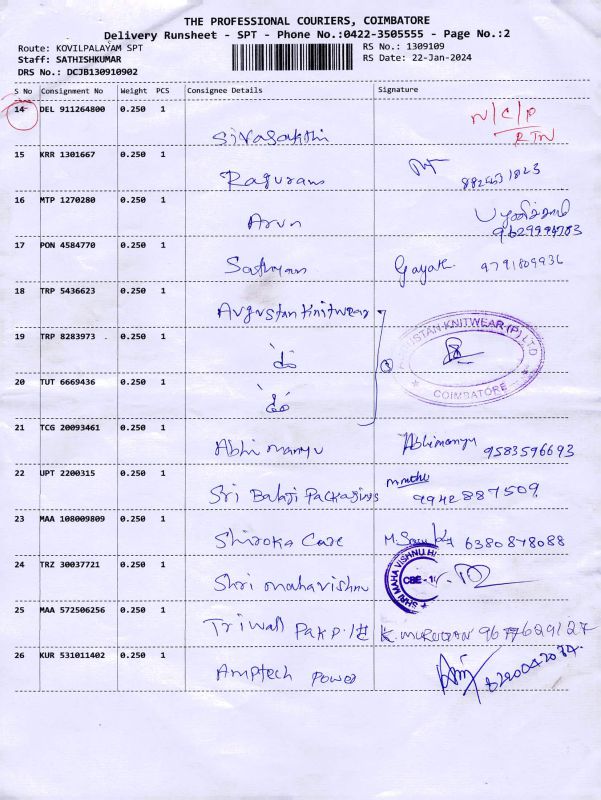 THE PROFESSIONAL COURIERS, COIMBATORE
Delivery Runsheet - SPT - Phone No.:0422-3505555 - Page No.:2
Route: KOVILPALAYAM SPT
Staff: SATHISHKUMAR
DRS No.: DCJB130910902
RS No.: 1309109
RS Date: 22-Jan-2024
S No Consignment No Weight PCS Consignee Details Signature
14 DEL 911264800 0.250 1 N/C/P
RTN
Sivasakthi
15 KRR 1301667 0.250 1
Raguram
16 MTP 1270280 0.250 1
Arun
17 PON 4584770 0.250 1
Gayat 9791809936
18 TRP 5436623 0.250 1
Augustan Knitwear
19 TRP 8283973 0.250 1
KNITWEAR (P) LTD
20 TUT 6669436 0.250 1
COIMBATORE
21 TCG 20093461 0.250 1
Abhimanyu Abhimanyu 9583596693
22 UPT 2200315 0.250 1
Sri Balaji Packagings 9942887509
23 MAA 108009809 0.250 1
Shiroka Care 6380878088
24 TRZ 30037721 0.250 1
Shri mahavishnu SHRI MAHA VISHNU
25 MAA 572506256 0.250 1
Triwall Pak P. Ltd K. MURUGAN 9677629127
26 KUR 531011402 0.250 1
Amptech Power